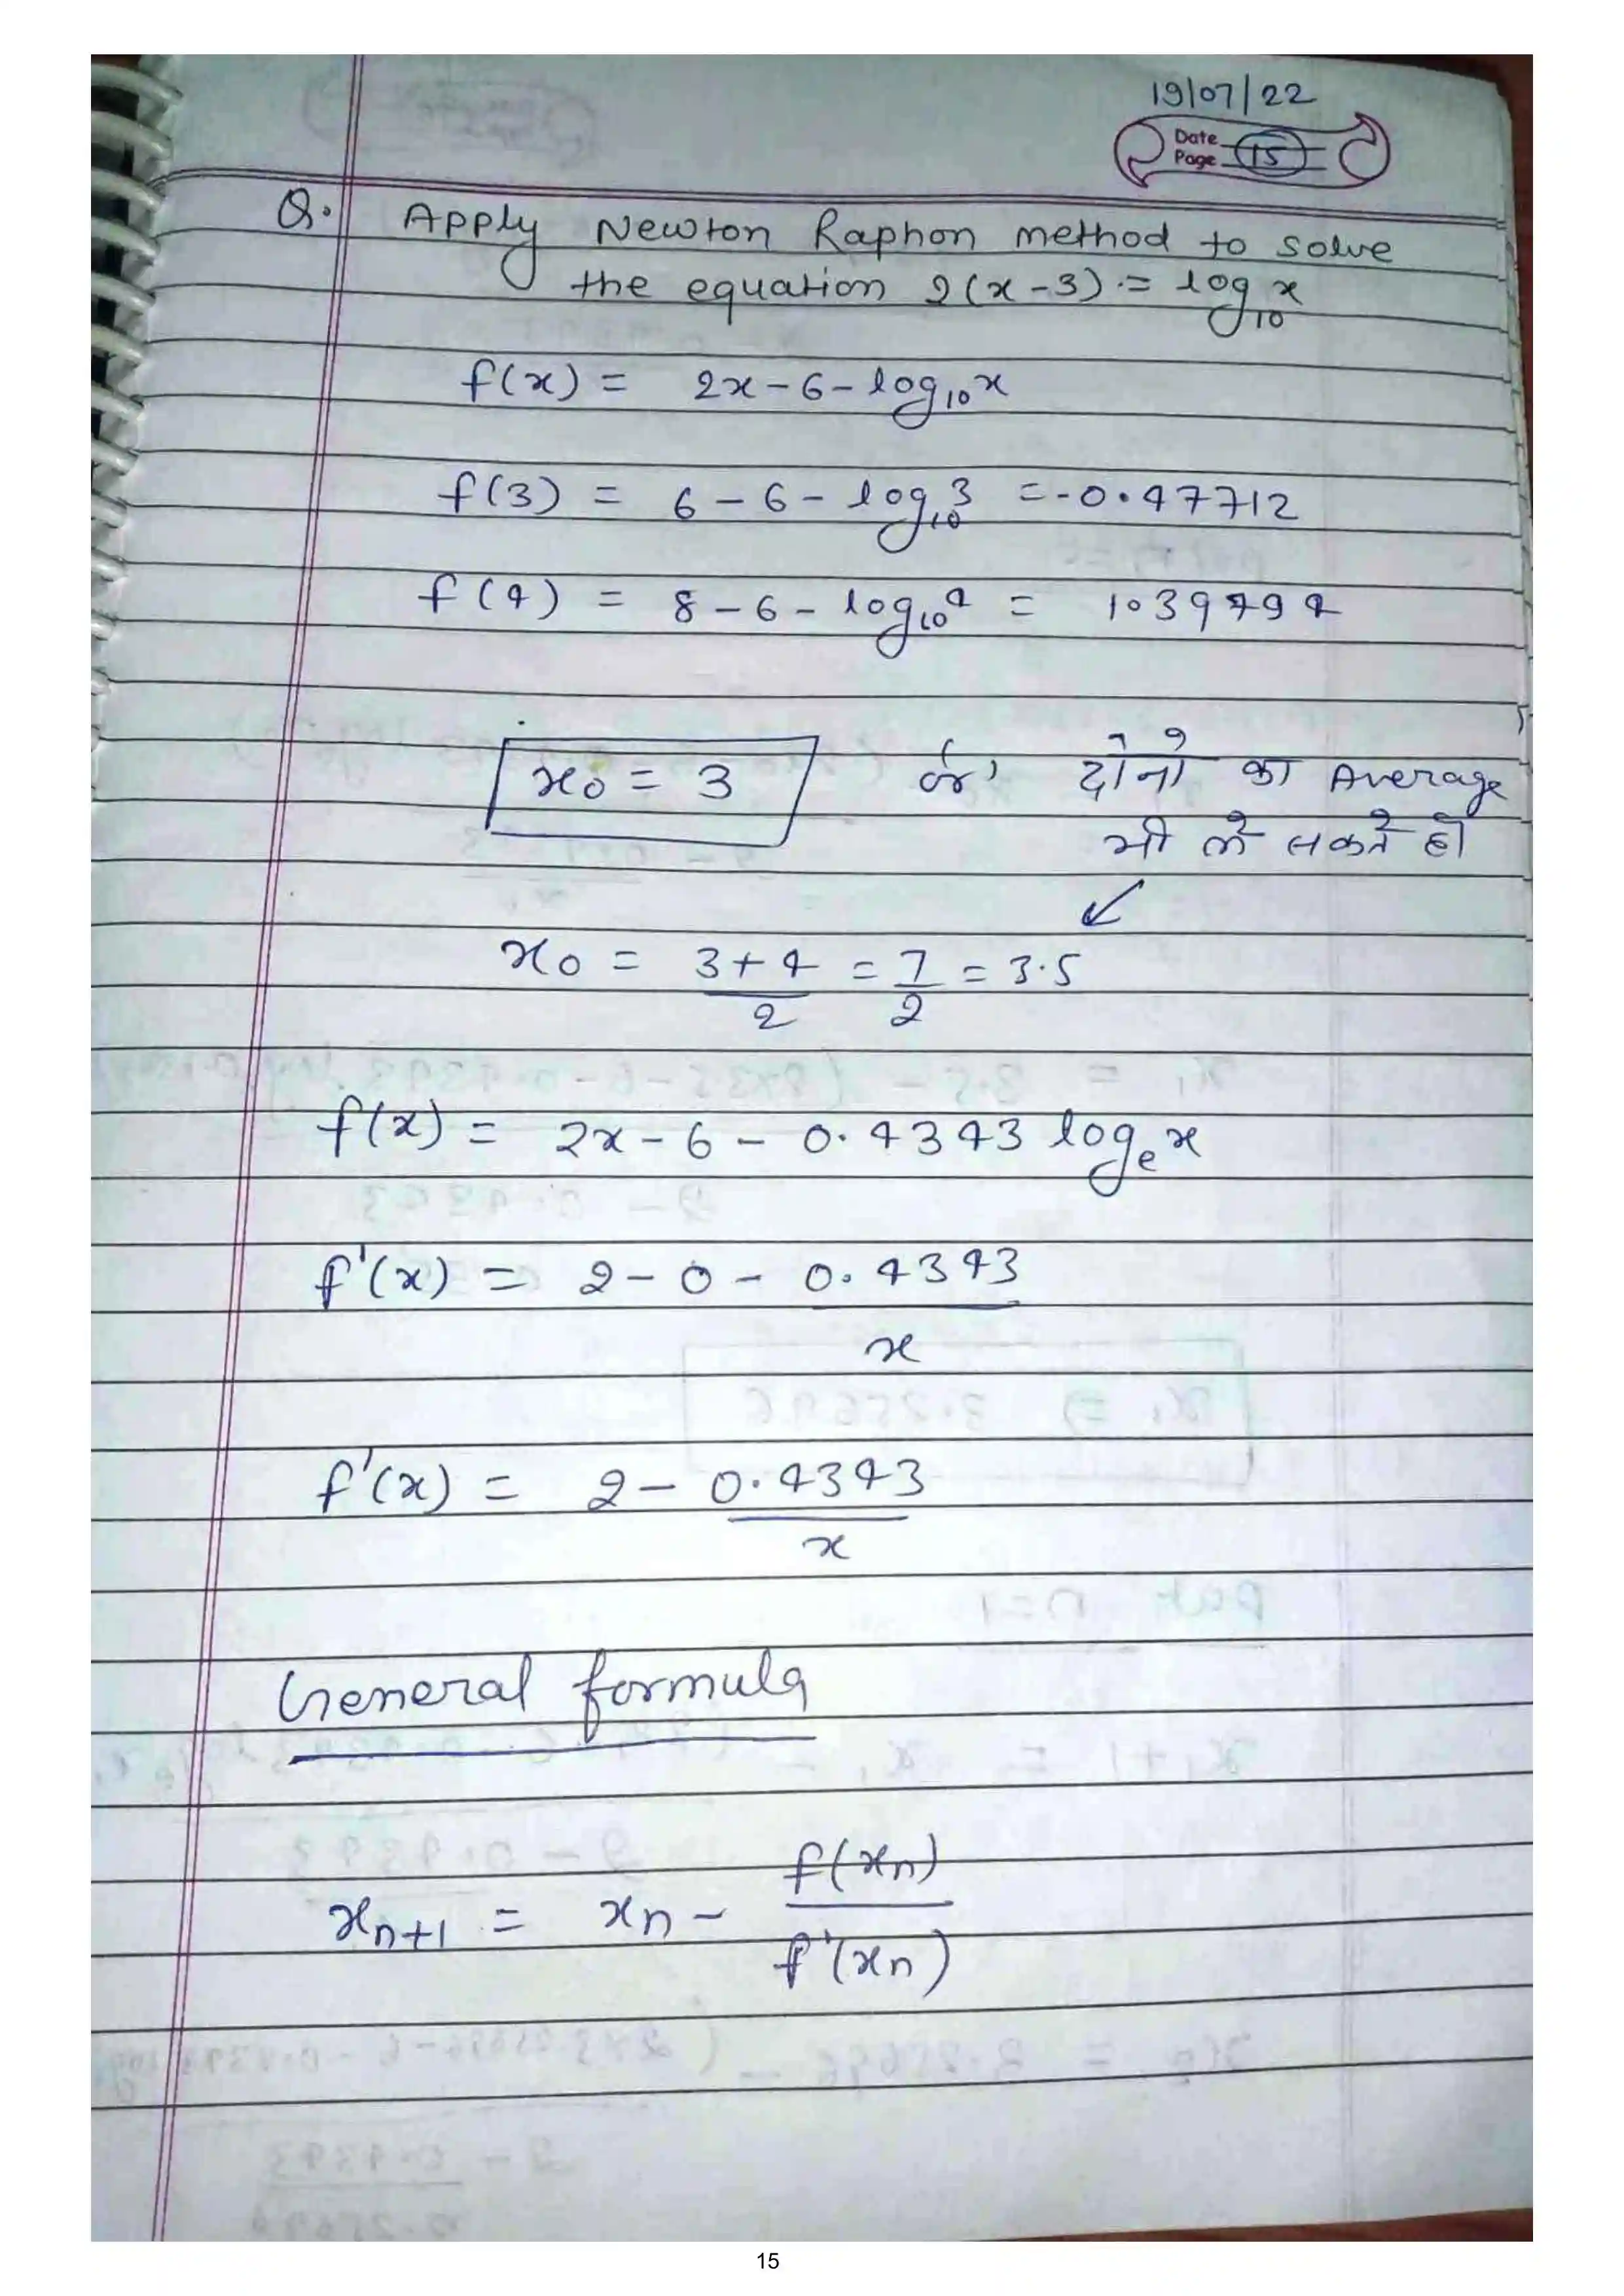 19/07/22
Date
Page 15
Q. Apply Newton Raphon method to solve
the equation 2(x-3) = log₁₀x
f(x) = 2x-6-log₁₀x
f(3) = 6-6-log₁₀3 = -0.47712
f(4) = 8-6-log₁₀4 = 1.39794
x₀ = 3 or दोनो का Average
भी ले सकते हो
x₀ = (3+4)/2 = 7/2 = 3.5
f(x) = 2x-6-0.4343 logₑx
f'(x) = 2-0-0.4343/x
f'(x) = 2-0.4343/x
General formula
xₙ₊₁ = xₙ - f(xₙ)/f'(xₙ)
15